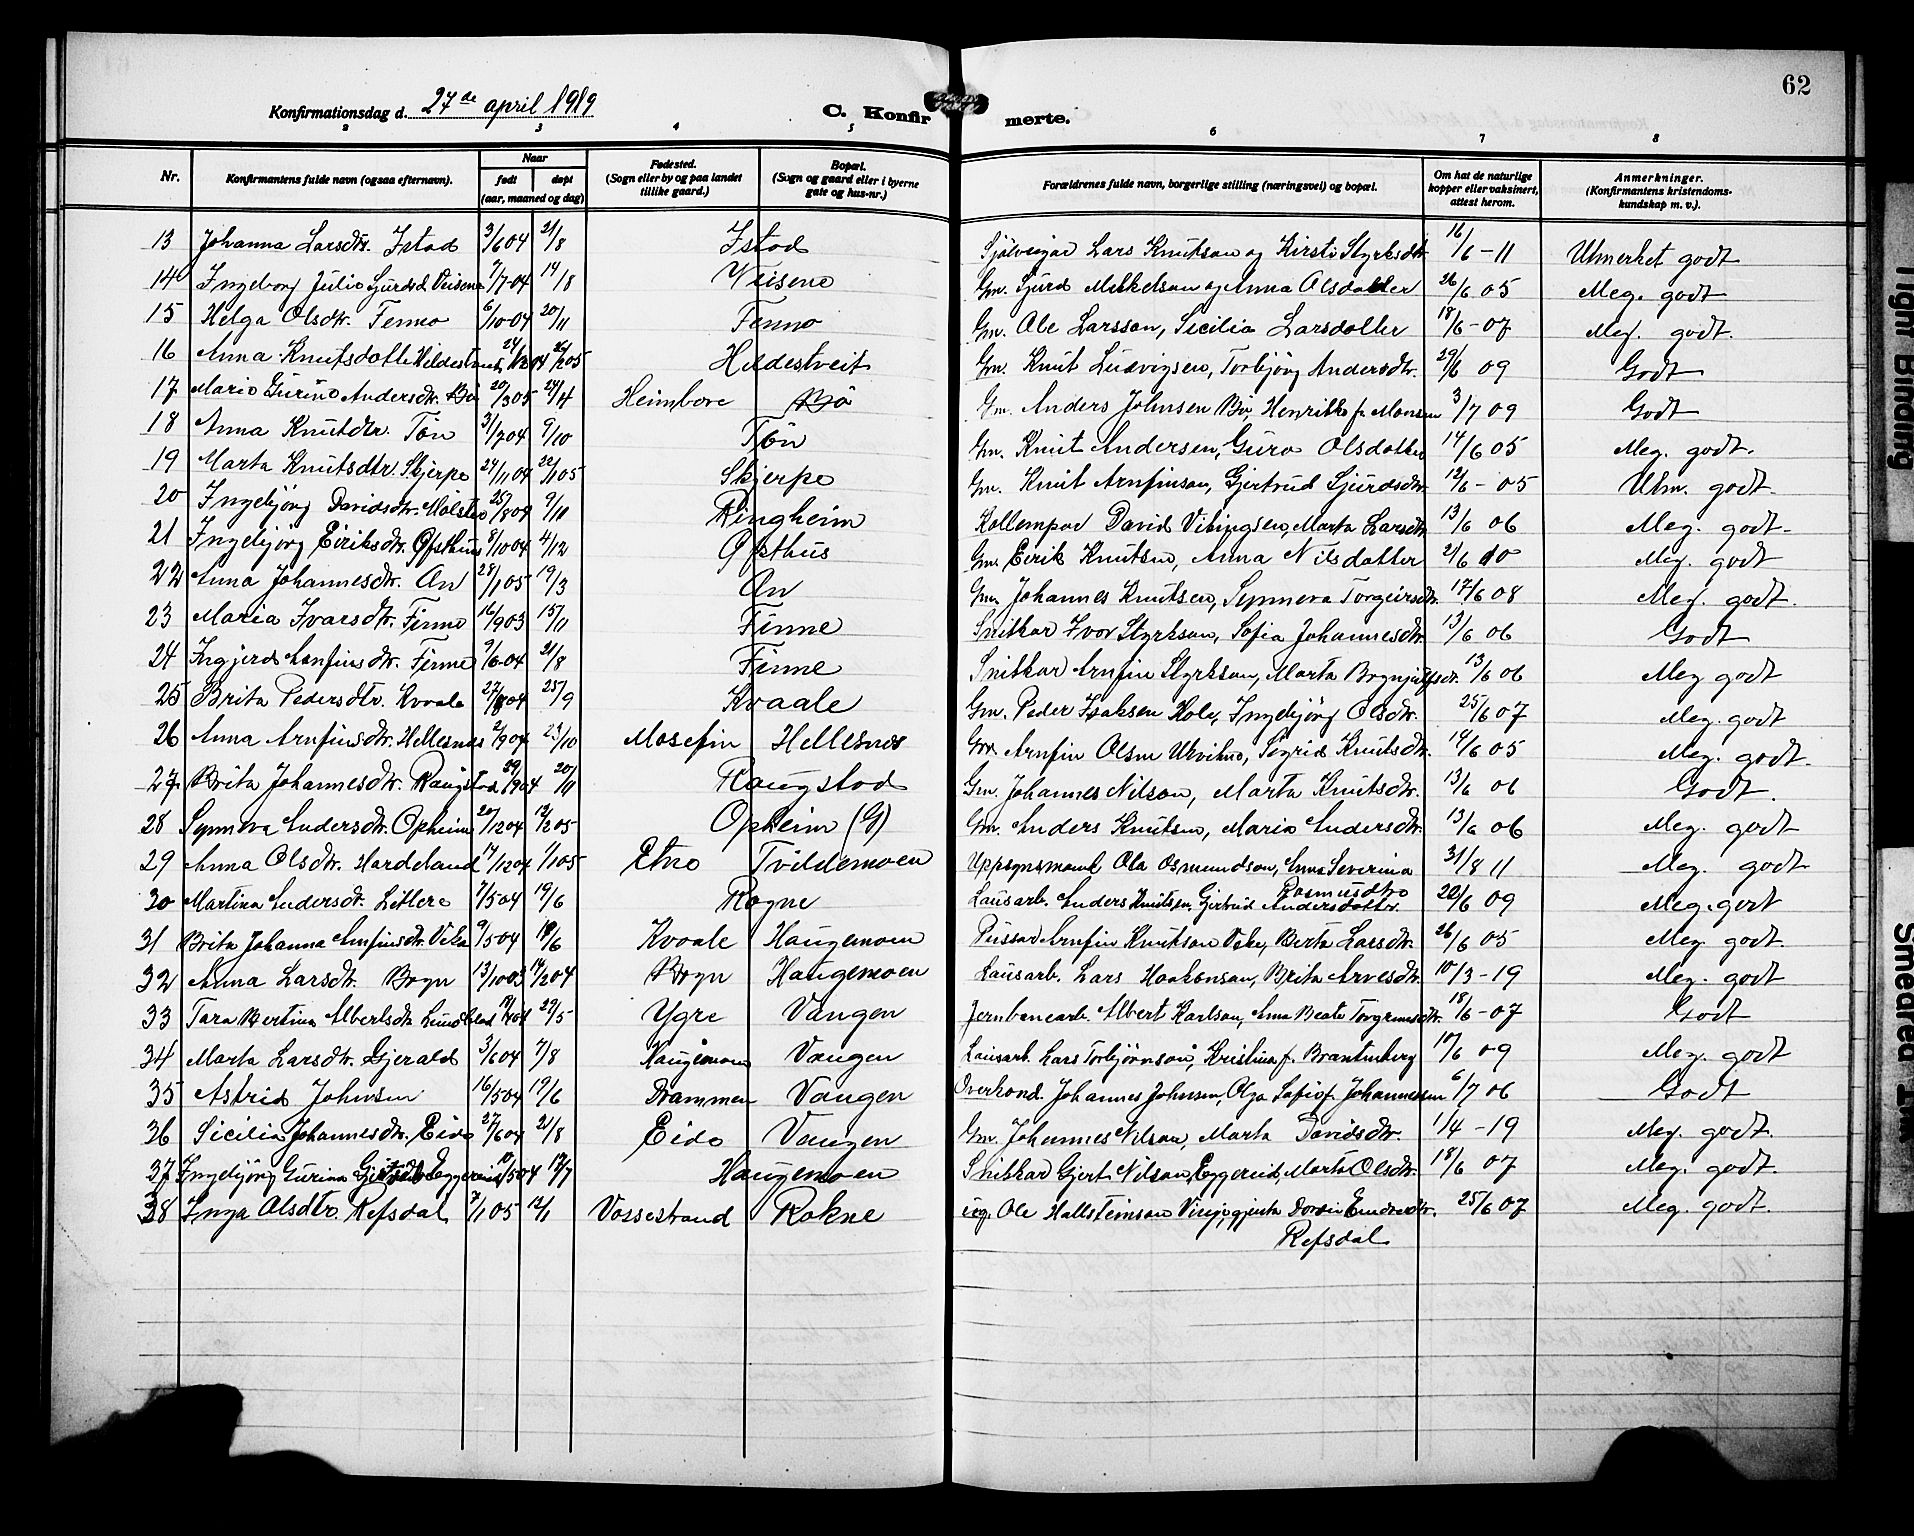 62
Konfirmationsdag d. 27de april 1919
C. Konfirmerte.
2 3 4 5 6 7 8
Nr. Konfirmantens fulde navn (ogsaa efternavn). Naar født døpt (aar, maaned og dag) Fødested. (Sogn eller by og paa landet tillike gaard.) Bopæl. (Sogn og gaard eller i byerne gate og hus-nr.) Forældrenes fulde navn, borgerlige stilling (næringsvei) og bopæl. Om hat de naturlige kopper eller vaksinert, attest herom. Anmerkninger. (Konfirmantens kristendomskundskap m. v.).
13 Johanna Larsdtr. Istad 3/6 04 21/8 Istad Sjølveigar Lars Knutson og Kirsti Styrksdtr 16/6-11 Utmerket godt
14 Ingeborg Julie Sjursd Veisene 7/7-04 14/8 Veisene Gm. Sjurd Mikkelson og Anna Olsdatter 26/6 05 Meg. godt
15 Helga Olsdtr. Fenno 6/10-04 20/11 Fenno Gm. Ole Larsson, Secilia Larsdotter 18/6-07 Meg. godt.
16 Anna Knutsdotter Hildestveit 24/12 04 26/2 05 Hildestveit Gm. Knut Ludvigsen, Torbjörg Andersdtr. 29/6 09 Godt
17 Marie Gurine Andersdtr. Bö 20/3 05 24/4 Heimbore Bö Gm. Anders Johnsen Bö, Henrikke f. Monsen 3/7 09 Godt
18 Anna Knutdtr. Tön 31/7 04 9/10 Tön Gm. Knut Andersen, Guro Olsdotter 14/6 05 Meg. godt.
19 Marta Knutsdtr. Skjerpe 24/11 04 22/1 05 Skjerpe Gm. Knut Arnfinson, Gjertrud Sjurdsdtr 12/6-05 Utm. godt.
20 Ingebjörg Davidsdtr. Mölster 25/8 04 9/11 Ringheim David Vikingsen, Marta Larsdtr 13/6 06 Meg. godt.
21 Ingebjörg Eiriksdtr. Öfsthus 8/10 04 4/12 Öfsthus Gm. Eirik Knutsen, Anna Nilsdotter 21/6 10 Meg. godt
22 Anna Johannesdtr. An 28/1 05 19/3 An Gm. Johannes Knutsen, Synneva Torgeirsdtr. 17/6 08 Meg. godt.
23 Maria Ivarsdtr. Finne 16/9 03 15/11 Finne Snikkar Ivar Styrkson, Sofia Johannesdtr. 13/6 06 Godt
24 Ingjerd Arnfinsdtr. Finne 9/6-04 21/8 Finne Snikkar Arnfin Styrkson, Marta Brynjulfsdtr. 13/6 06 Meg godt
25 Brita Pedersdtr. Kvaale 27/8 04 25/9 Kvaale Gm. Peder Isaksen Kole, Ingebjörg Olsdtr. 25/6 07 Meg. godt
26 Anna Arnfinsdtr. Hellesnes 2/9 04 23/10 Mosefin Hellesnes Gm. Arnfin Olsen Urvikno, Sigrid Knutsdtr. 14/6 05 Meg. godt.
27 Brita Johannesdtr. Raugstad 29/9 04 20/11 Raugstad Gm. Johannes Nilson, Marta Knutsdtr. 13/6 06 Godt.
28 Synneva Andersdtr. Opheim 20/12 04 12/2 05 Opheim (G) Gm. Anders Knutsen, Maria Andersdtr. 13/6 06 Meg. godt
29 Anna Olsdtr. Hardeland 17/12 04 1/1 05 Etne Tvildemoen Uppsynsmand Ola Osmundson, Anna Severina Rasmusdtr 31/8 11 Meg. godt
30 Martina Andersdtr. Litlere 7/5 04 19/6 Rogne Lausarb. Anders Knutsen, Gjertrud Andersdotter. 22/6 09 Meg. godt
31 Brita Johanna Arnfinsdtr. Veka 9/5 04 19/6 Kvaale Haugemoen Pussar Arnfin Knutson Veke, Berta Larsdtr. 26/6 05 Meg. godt
32 Anna Larsdtr. Bryn 13/10 03 14/2 04 Bryn Haugemoen Lausarb. Lars Haakonson, Brita Arvesdtr. 10/3-19 Meg. godt
33 Tora Bertina Albertsdtr Lundblad 29/5 Ygre Vangen Jernbanearb. Albert Karlson, Anna Beate Torgrimsdtr. 18/6-07 Godt
34 Marta Larsdtr. Gjerald 3/6 04 7/8 Haugemoen Vangen Lausarb. Lars Torbjörnson, Kristina f. Brantenberg 10/6 09 Meg. godt
35 Astrid Johnsen 16/5 04 19/6 Drammen Vangen Overkond. Johannes Johnsen, Olga Sofie f. Johannessen 6/7 06 Godt
36 Sicilia Johannesdtr. Eide 27/6 04 21/8 Eide Vangen Gm. Johannes Nilson, Marta Davidsdtr. 1/4-19 Meg. godt.
37 Ingebjörg Gurina Gjertsdtr Eggereid 10/5 04 17/7 Haugemoen Snikkar Gjert Nilson Eggereid, Marta Olsdtr. 18/6 07 Meg. godt
38 Inga Olsdtr. Refsdal 7/1 05 12/1 Vossestrand Rokne Ole Hallsteinson Vinje, gjenta Endresdtr. Refsdal 25/6 07 Meg. godt.
Tight Binding
Smeared Ink